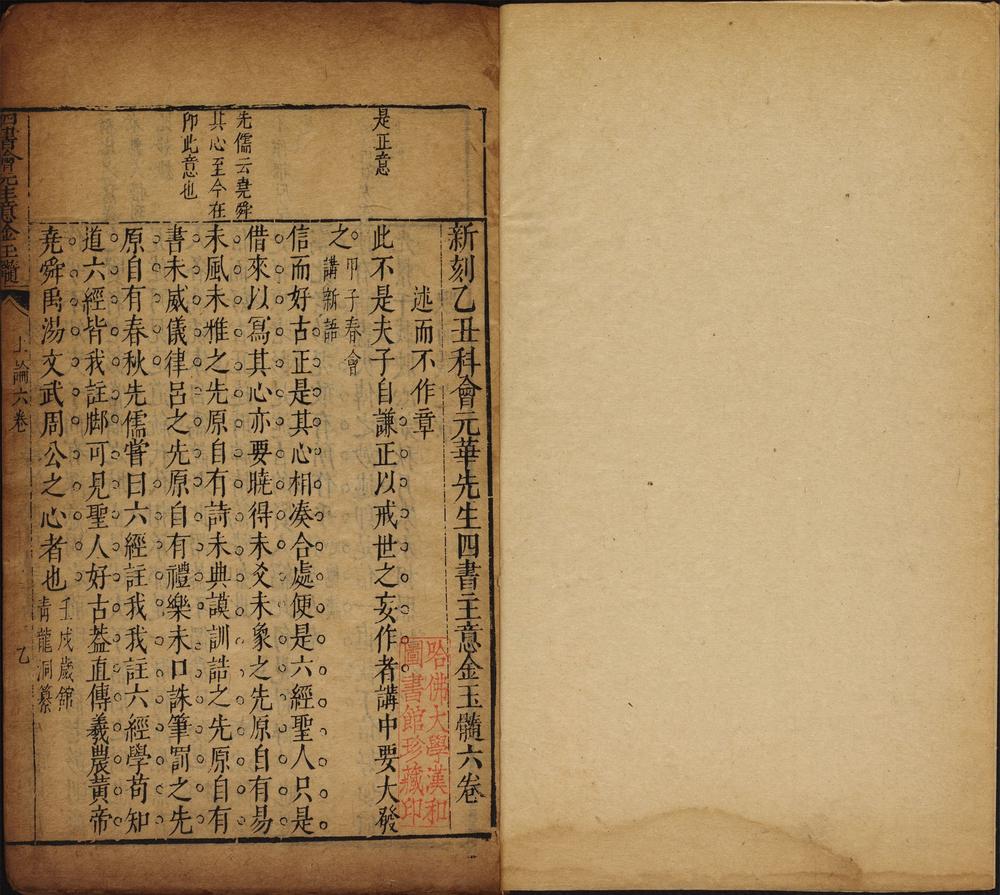 新刻乙丑科會元華先生四書主意金玉髓六卷
述而不作章
此不是夫子自謙正以戒世之妄作者講中要大發
之甲子春會
講新語
信而好古正是其心相凑合處便是六經聖人只是
借來以寫其心亦要曉得未爻未象之先原自有易
未風未雅之先原自有詩未典謨訓誥之先原自有
書未威儀律呂之先原自有禮樂未口誅筆罰之先
原自有春秋先儒嘗曰六經註我我註六經學苟知
道六經皆我註脚可見聖人好古葢直傳羲農黃帝
堯舜禹湯文武周公之心者也壬戌歲館
青龍洞纂
是正意
先儒云堯舜
其心至今在
即此意也
四書會元主意金玉髓
上論六卷
乙
哈佛大學漢和
圖書館珍藏印